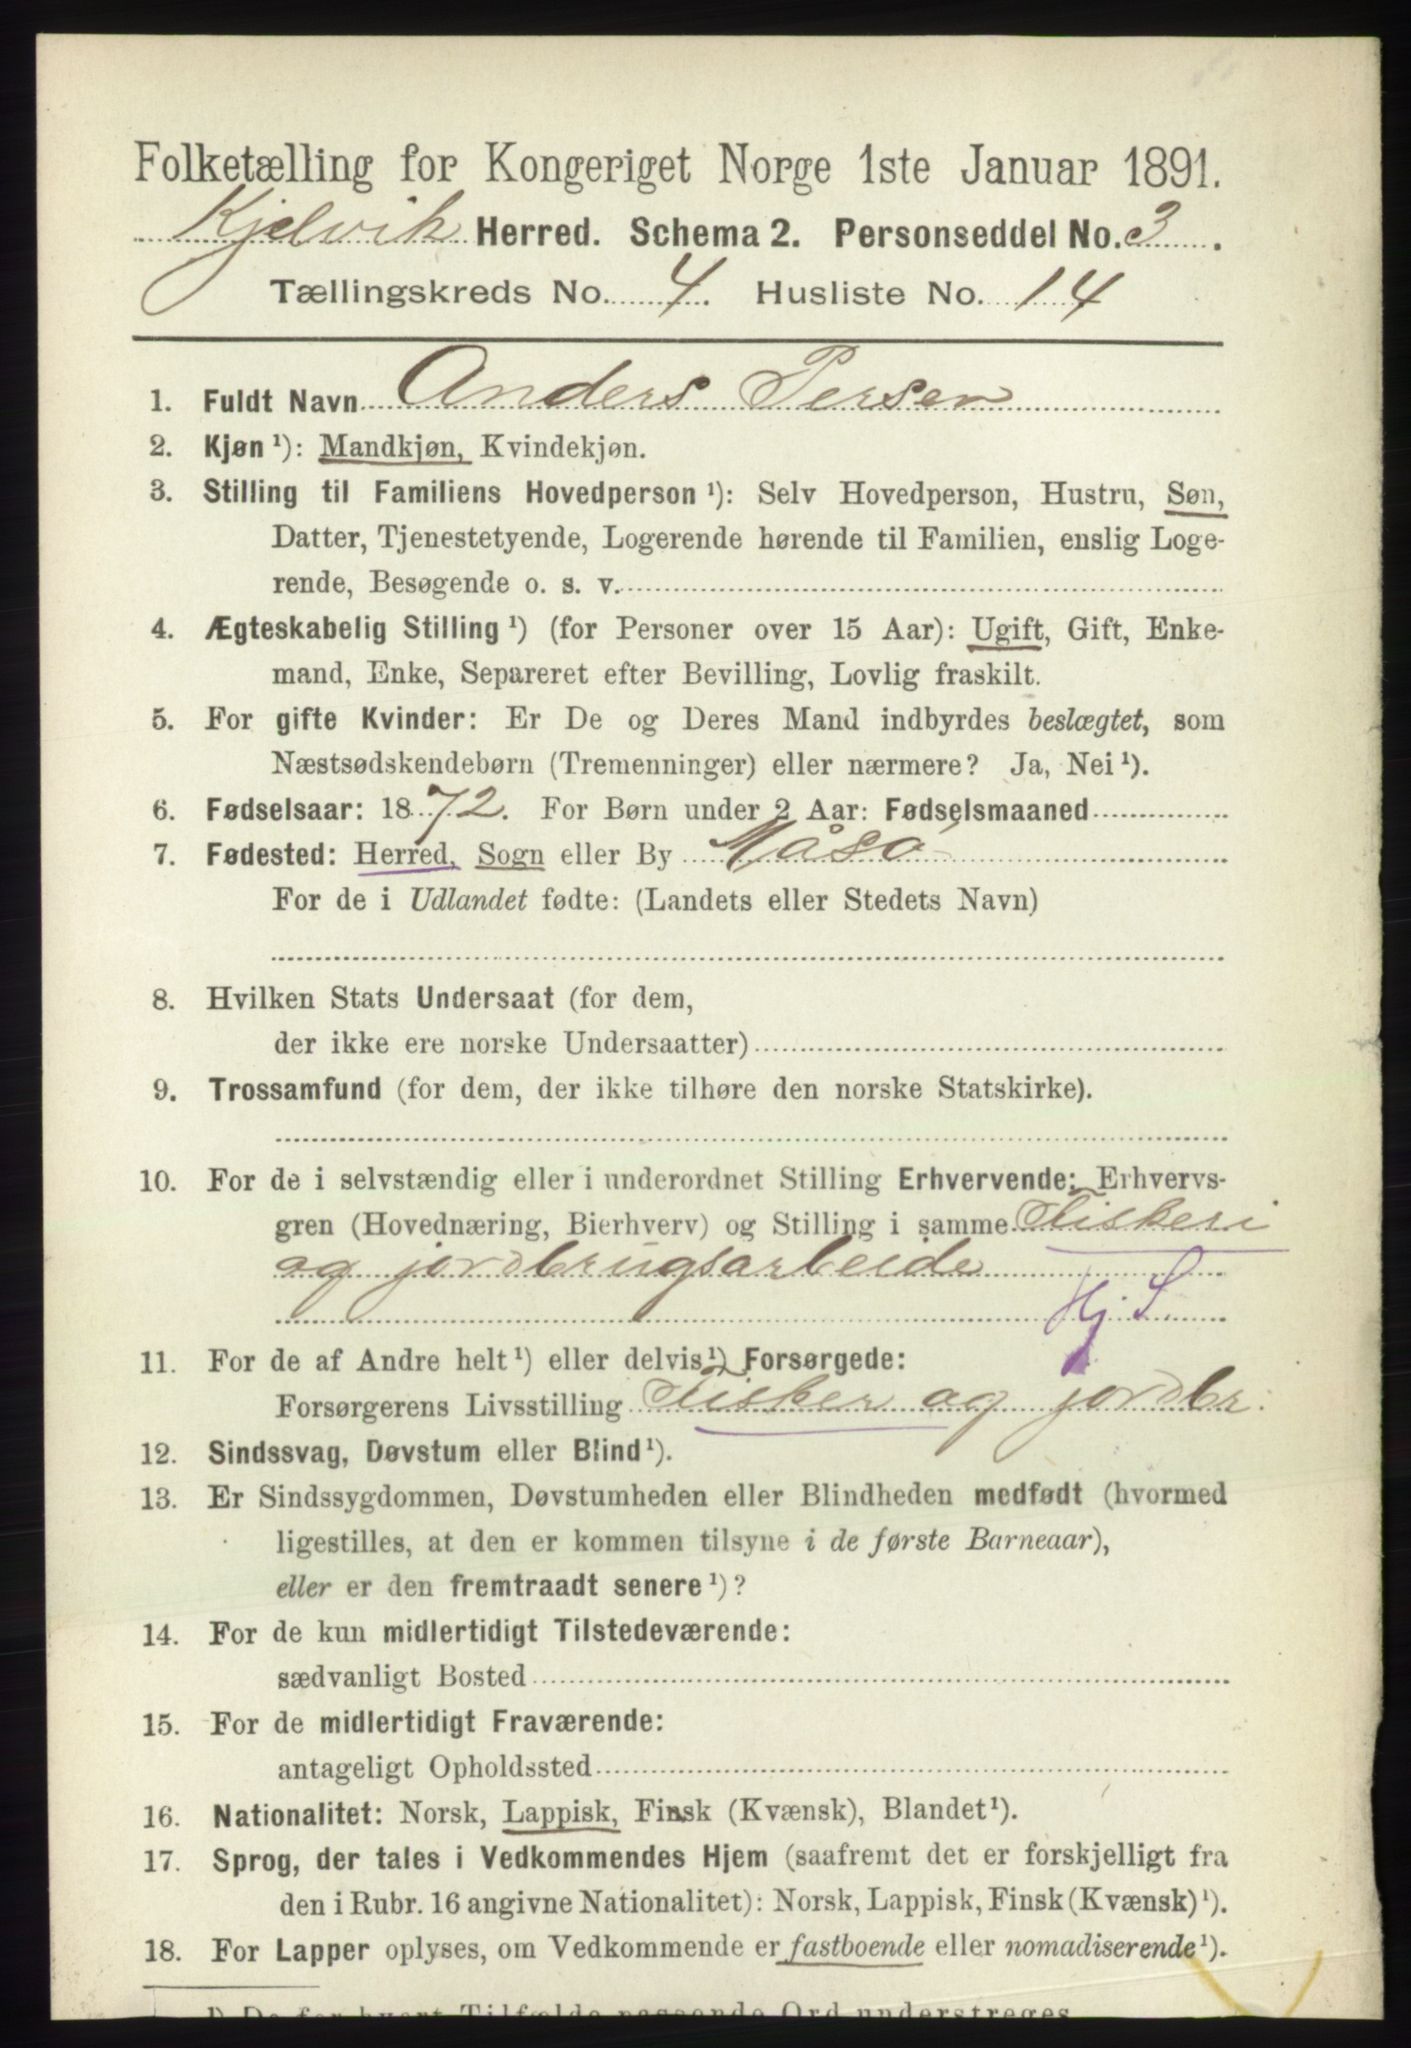 Folketælling for Kongeriget Norge 1ste Januar 1891.
Kjelvik Herred. Schema 2. Personseddel No. 3.
Tællingskreds No. 4. Husliste No. 14
1. Fuldt Navn Anders Persen
2. Kjøn ¹): Mandkjøn, Kvindekjøn.
3. Stilling til Familiens Hovedperson ¹): Selv Hovedperson, Hustru, Søn,
Datter, Tjenestetyende, Logerende hørende til Familien, enslig Loge-
rende, Besøgende o. s. v.
4. Ægteskabelig Stilling ¹) (for Personer over 15 Aar): Ugift, Gift, Enke-
mand, Enke, Separeret efter Bevilling, Lovlig fraskilt.
5. For gifte Kvinder: Er De og Deres Mand indbyrdes beslægtet, som
Næstsødskendebørn (Tremenninger) eller nærmere? Ja, Nei ¹).
6. Fødselsaar: 1872. For Børn under 2 Aar: Fødselsmaaned
7. Fødested: Herred, Sogn eller By Måsø
For de i Udlandet fødte: (Landets eller Stedets Navn)
8. Hvilken Stats Undersaat (for dem,
der ikke ere norske Undersaatter)
9. Trossamfund (for dem, der ikke tilhøre den norske Statskirke).
10. For de i selvstændig eller i underordnet Stilling Erhvervende: Erhvervs-
gren (Hovednæring, Bierhverv) og Stilling i samme Fiskeri
og jordbrugsarbeide
Hj. S.
11. For de af Andre helt ¹) eller delvis ¹) Forsørgede:
Forsørgerens Livsstilling Fisker og jordbr.
12. Sindssvag, Døvstum eller Blind ¹).
13. Er Sindssygdommen, Døvstumheden eller Blindheden medfødt (hvormed
ligestilles, at den er kommen tilsyne i de første Barneaar),
eller er den fremtraadt senere ¹)?
14. For de kun midlertidigt Tilstedeværende:
sædvanligt Bosted
15. For de midlertidigt Fraværende:
antageligt Opholdssted
16. Nationalitet: Norsk, Lappisk, Finsk (Kvænsk), Blandet ¹).
17. Sprog, der tales i Vedkommendes Hjem (saafremt det er forskjelligt fra
den i Rubr. 16 angivne Nationalitet): Norsk, Lappisk, Finsk (Kvænsk) ¹).
18. For Lapper oplyses, om Vedkommende er fastboende eller nomadiserende ¹).
¹) De for hvert Tilfælde passende Ord understreges.